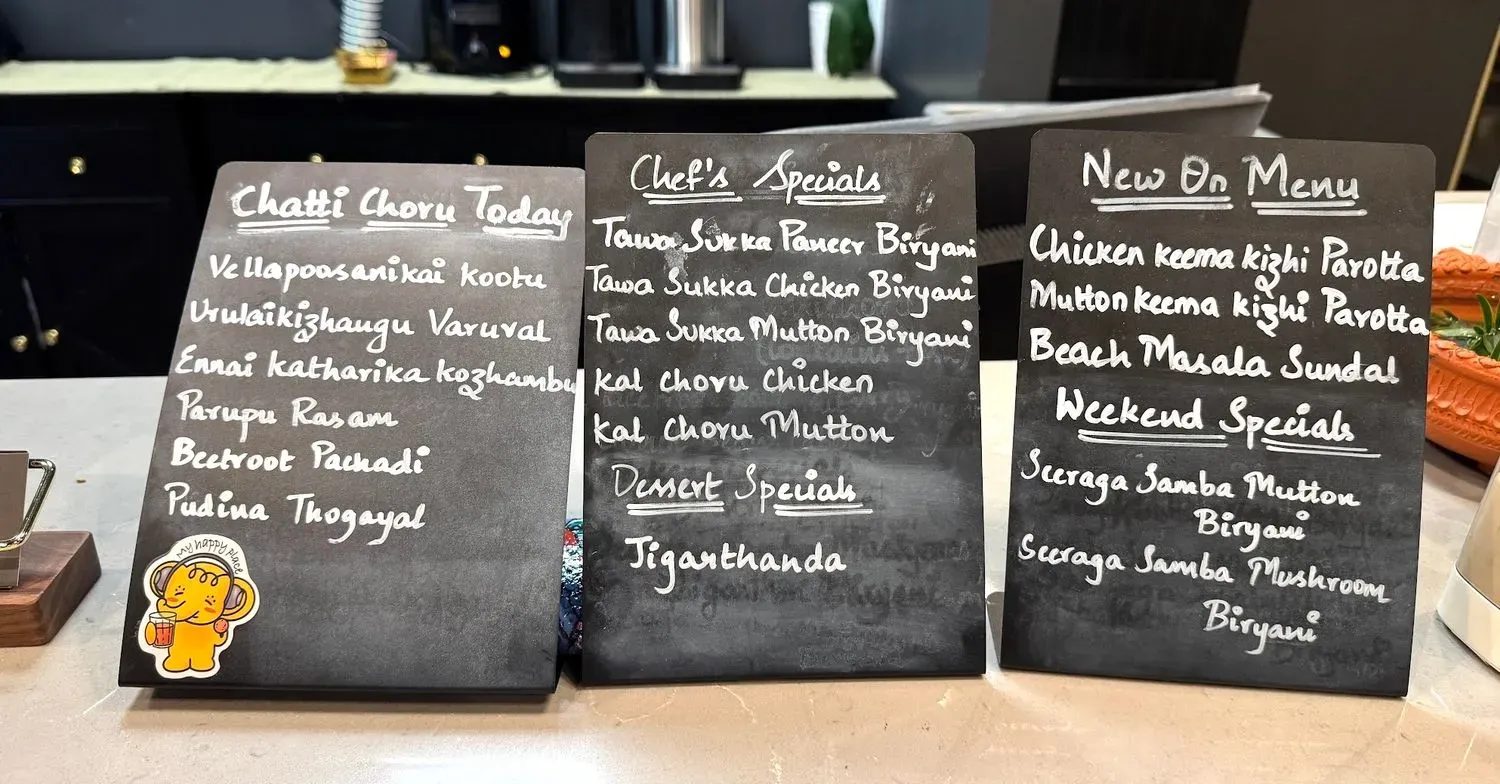 Chatti Choru Today
Vellapoosanikai kootu
Urulaikizhangu Varuval
Ennai katharika kozhambu
Parupu Rasam
Beetroot Pachadi
Pudina Thogayal
my happy place
Chef's Specials
Tawa Sukka Paneer Biryani
Tawa Sukka Chicken Biryani
Tawa Sukka Mutton Biryani
kal choru Chicken
kal choru Mutton
Dessert Specials
Jigarthanda
New On Menu
Chicken keema kizhi Parotta
Mutton keema kizhi Parotta
Beach Masala Sundal
Weekend Specials
Seeraga Samba Mutton
Biryani
Seeraga Samba Mushroom
Biryani